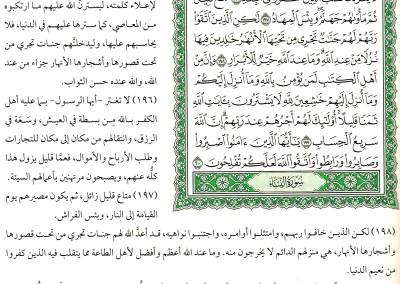 لإعلاء كلمته، ليسترنَّ الله عليهم ما ارتكبوه
من المعاصي، كما سترها عليهم في الدنيا، فلا
يحاسبهم عليها، وليدخلنَّهم جنات تجري من
تحت قصورها وأشجارها الأنهار جزاء من عند
الله، والله عنده حسن الثواب.
(١٩٦) لا تغتر -أيها الرسول- بما عليه أهل
الكفر بالله من بسطة في العيش، وسَعَة في
الرزق، وانتقالهم من مكان إلى مكان للتجارات
وطلب الأرباح والأموال، فعمَّا قليل يزول هذا
كلُّه عنهم، ويصبحون مرتهنين بأعمالهم السيئة.
(١٩٧) متاع قليل زائل، ثم يكون مصيرهم يوم
القيامة إلى النار، وبئس الفراش.
ثُمَّ مَأْوَىٰهُمْ جَهَنَّمُ وَبِئْسَ ٱلْمِهَادُ ١٩٧ لَٰكِنِ ٱلَّذِينَ ٱتَّقَوْا۟
رَبَّهُمْ لَهُمْ جَنَّٰتٌ تَجْرِى مِن تَحْتِهَا ٱلْأَنْهَٰرُ خَٰلِدِينَ فِيهَا
نُزُلًا مِّنْ عِندِ ٱللَّهِ وَمَا عِندَ ٱللَّهِ خَيْرٌ لِّلْأَبْرَارِ ١٩٨ وَإِنَّ مِنْ
أَهْلِ ٱلْكِتَٰبِ لَمَن يُؤْمِنُ بِٱللَّهِ وَمَآ أُنزِلَ إِلَيْكُمْ
وَمَآ أُنزِلَ إِلَيْهِمْ خَٰشِعِينَ لِلَّهِ لَا يَشْتَرُونَ بِـَٔايَٰتِ ٱللَّهِ
ثَمَنًا قَلِيلًا أُو۟لَٰٓئِكَ لَهُمْ أَجْرُهُمْ عِندَ رَبِّهِمْ إِنَّ ٱللَّهَ
سَرِيعُ ٱلْحِسَابِ ١٩٩ يَٰٓأَيُّهَا ٱلَّذِينَ ءَامَنُوا۟ ٱصْبِرُوا۟
وَصَابِرُوا۟ وَرَابِطُوا۟ وَٱتَّقُوا۟ ٱللَّهَ لَعَلَّكُمْ تُفْلِحُونَ ٢٠٠
سُورَةُ النِّسَاءِ
(١٩٨) لكن الذين خافوا ربهم، وامتثلوا أوامره، واجتنبوا نواهيه، قد أعدَّ الله لهم جنات تجري من تحت قصورها
وأشجارها الأنهار، هي منزلهم الدائم لا يخرجون منه. وما عند الله أعظم وأفضل لأهل الطاعة مما يتقلب فيه الذين كفروا
من نعيم الدنيا.